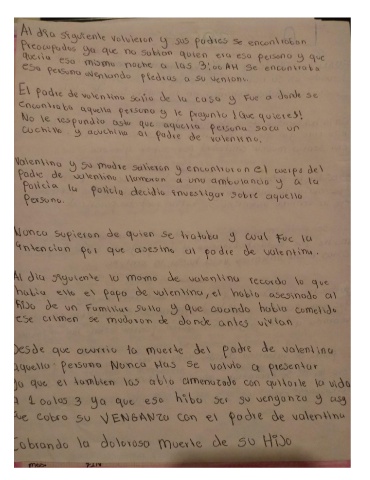 Al día siguiente volvieron y sus padres se encontraban
Preocupados ya que no sabian quien era esa persona y que
queria esa mismo noche a las 3:00 AM se encontraba
esa persona aventando piedras a su ventana.
El padre de valentina salio de la casa y fue a donde se
encontraba aquella persona y le pregunto ¡Que quieres!
No le respondio asta que aquella persona saco un
cuchivo y acuchivo al padre de valentina.
Valentina y su madre salieron y encontraron el cuerpo del
Padre de valentina llamaron a una ambulancia y a la
Policia la policia decidio investigar sobre aquella
Persona.
Nunca supieron de quien se trataba y cual Fue la
intencion por que asesino al padre de valentina.
Al dia siguiente la mama de valentina recordo lo que
habia el papa de valentina, el habia asesinado al
HIJo de un Familiar sullo y que cuando habia cometido
ese crimen se mudaron de donde antes vivian
Desde que ocurrio ta muerte del padre de valentina
aquella persona Nunca Mas se volvio a presentar
ya que el tambien las abia amenazado con quitarle la vida
a los 3 ya que esa hiba ser su venganza y asy
fue cobro su VENGANZA con el padre de valentina
Cobrando la dolorosa muerte de su HIJo